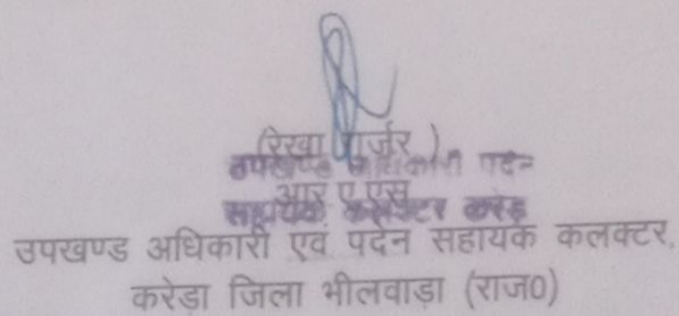 (रेखा गुर्जर)
उपखण्ड अधिकारी पदेन
आर.ए.एस
सहायक कलक्टर करेड़ा
उपखण्ड अधिकारी एवं पदेन सहायक कलक्टर,
करेडा जिला भीलवाडा (राज0)